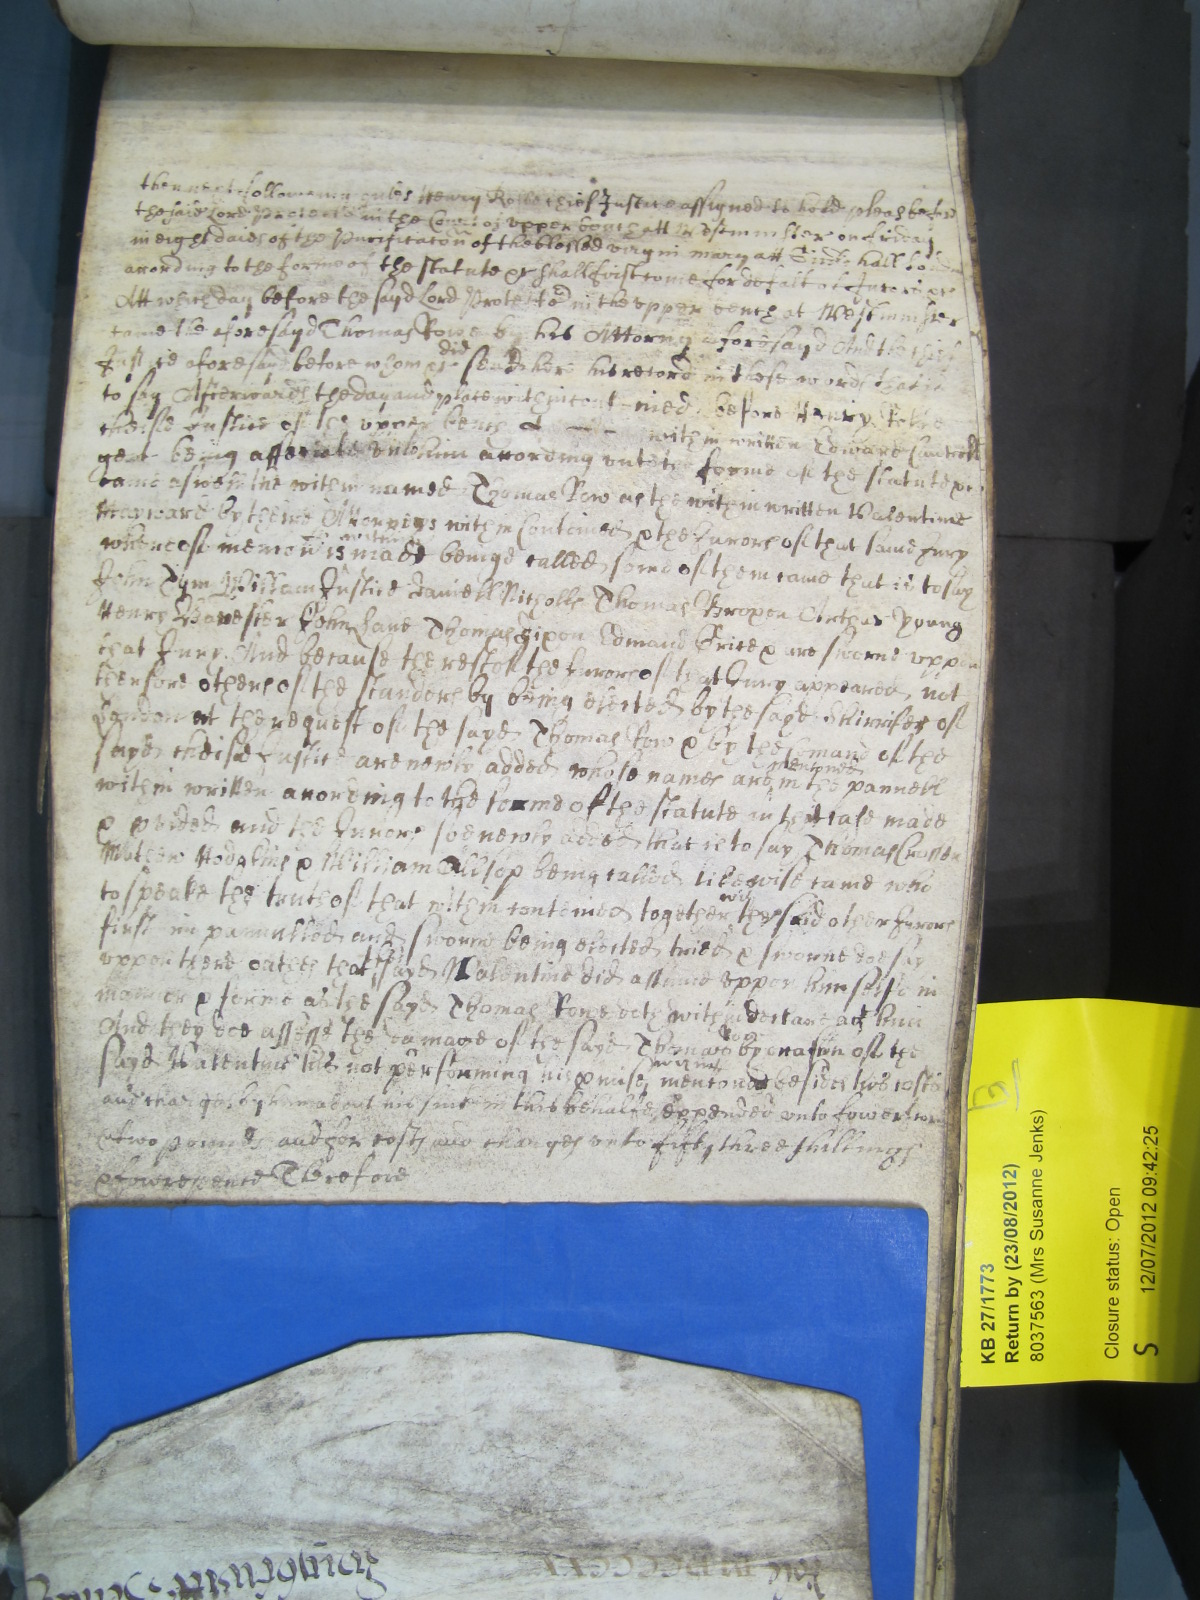 then next followeing unles Henry Rolle chief Justice assigned to hold pleas before
the said Lord Protector in the Court of upper bench att Westminster on friday
in eight daies of the Purificacon of the blessed virgin mary att Guildhall London
according to the forme of the statute &c shall first come for defalt of Jurors &c
Att which day before the sayd Lord Protector in the upper bench at Westminster
came the aforesayd Thomas Rowe by his Attorny aforesayd And the chief
Justice aforesayd before whome &c did send here his record in these words that is
to say Afterwards the day and place within contained before Henry Rolle
cheife Justice of the upper bench within written Edward
ger being associate unto him according unto the forme of the statute &c
came aswell the within named Thomas Row as the within written Valentine
by theire Attorneys within Conteined & the Jurors of that same Jury
whereof memon within is made beinge called some of them came that is to say
John Pym William Justice Daniell Nicholls Thomas Gropen Arthur Young
Henry John Lane Thomas Gipon Edmund Brice & are sworne uppon
that Jury And because the rest of the Jurors of that Jury appeared not
therfore others of the standers by being elected by the sayd Shirrifes of
London at the request of the sayd Thomas Row & by the comand of the
sayd cheife Justice are newly added whose names are mentoned in the pannell
within written according to the forme of the statute in that case made
& pvided and the Jurors soe newly added that is to say Thomas
Mathew Hodgkins & William Allsop being called likewise came who
to speake the truth of that within conteined together with the said other Jurors
first impannelled and sworne being elected tried & sworne doe say
uppon there oathes that the sayd Valentine did assume uppon himselfe in
manner & forme as the sayd Thomas Rowe doth within declare agt him
And they doe assesse the damage of the sayd Thomas Row by reason of the
sayd Valentine his not performing his pmise within mentoned besides his costs
and charges by him about his suit in this behalfe expended unto fower score
& two pounds and for costs and charges unto fifty three shillings
& fowre pence Therefore
KB 27/1773
Return by (23/08/2012)
8037563 (Mrs Susanne Jenks)
Closure status: Open
S
12/07/2012 09:42:25